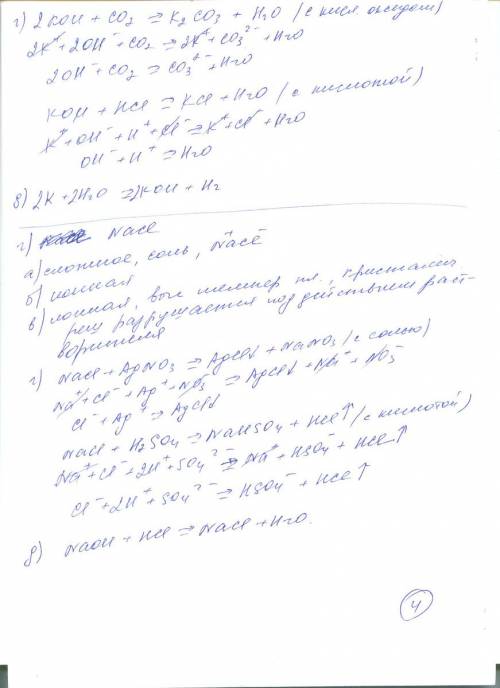 г) 2KOH + CO2 = K2CO3 + H2O (с кисл. оксидом)
2K⁺ + 2OH⁻ + CO2 = 2K⁺ + CO3²⁻ + H2O
2OH⁻ + CO2 = CO3²⁻ + H2O
KOH + HCl = KCl + H2O (с кислотой)
K⁺ + OH⁻ + H⁺ + Cl⁻ = K⁺ + Cl⁻ + H2O
OH⁻ + H⁺ = H2O
д) 2K + 2H2O = 2KOH + H2
NaCl
а) сложное, соль, Na⁺Cl⁻
б) ионная
в) ионная, выс. темпер пл., кристалич
реш разрушается под действием раст-
ворителя
г) NaCl + AgNO3 = AgCl↓ + NaNO3 (с солью)
Na⁺ + Cl⁻ + Ag⁺ + NO3⁻ = AgCl↓ + Na⁺ + NO3⁻
Cl⁻ + Ag⁺ = AgCl↓
NaCl + H2SO4 = NaHSO4 + HCl↑ (с кислотой)
Na⁺ + Cl⁻ + 2H⁺ + SO4²⁻ = Na⁺ + HSO4⁻ + HCl↑
Cl⁻ + 2H⁺ + SO4²⁻ = HSO4⁻ + HCl↑
д) NaOH + HCl = NaCl + H2O.
4